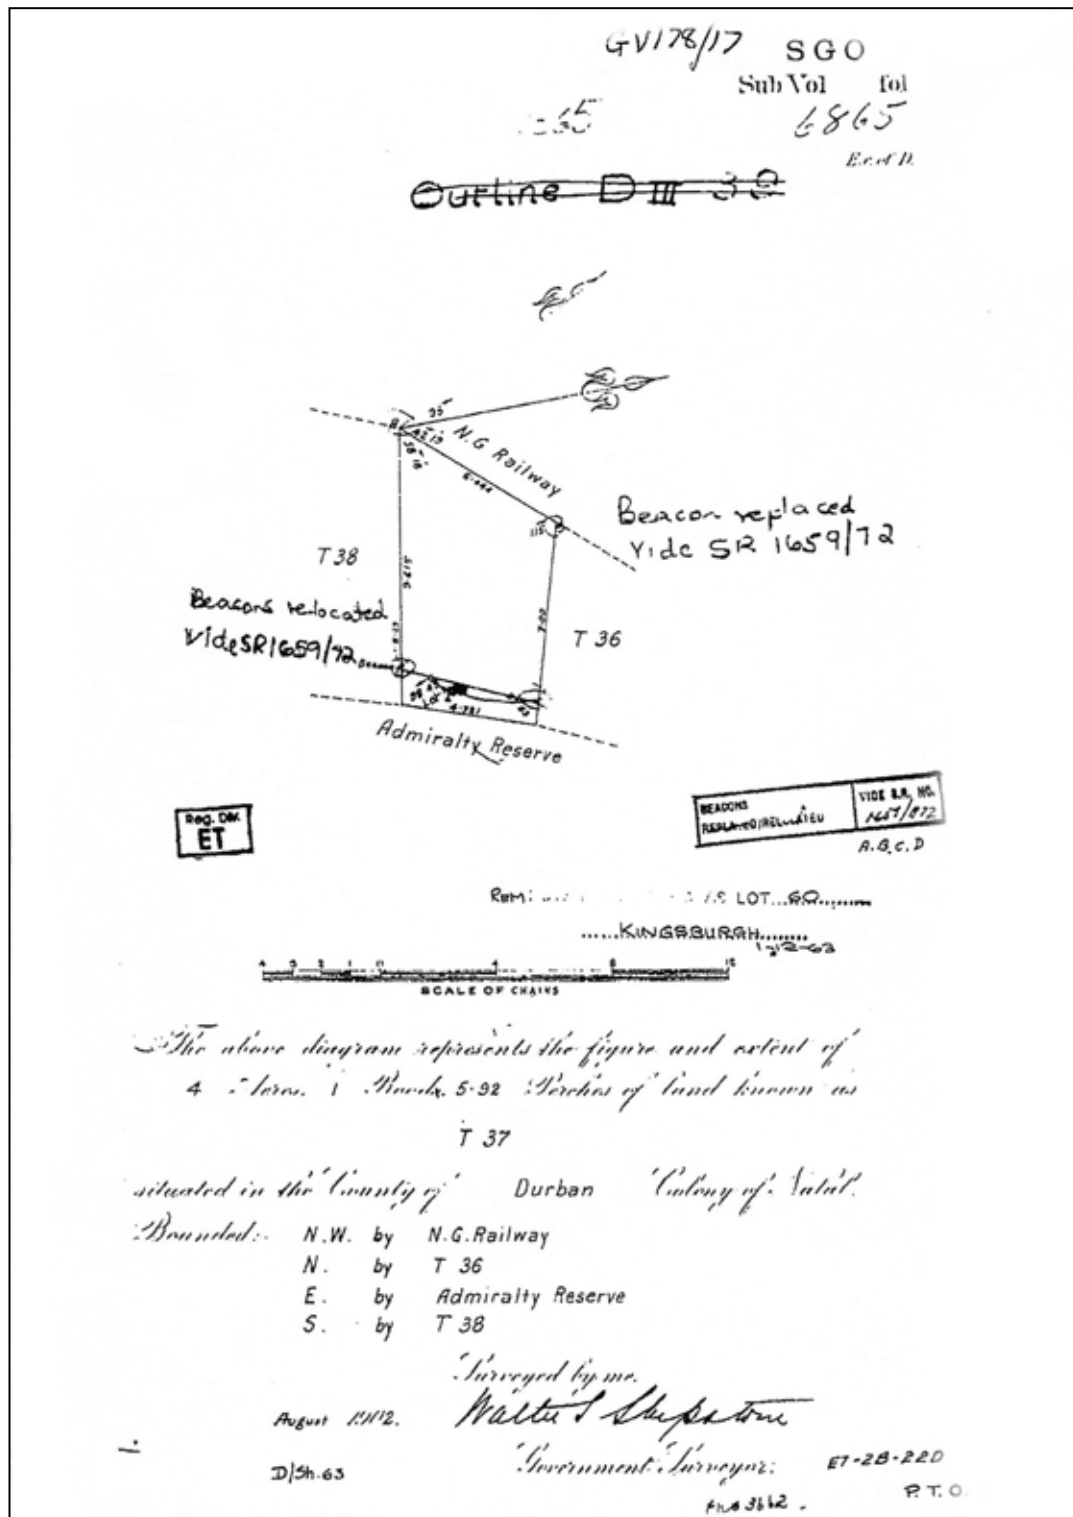 GV178/17
SGO
Sub Vol fol
6865
E.c. of D.
Outline D III 39
95°
N.G Railway
T 38
Beacon replaced
Vide SR 1659/72
Beacons relocated
Vide SR 1659/72
T 36
Admiralty Reserve
Reg. Div.
ET
BEACONS
REPLACED/RELOCATED
VIDE S.R. NO.
A.B.C.D
LOT...60.........
......KINGSBURGH........
1-12-63
4 3 2 1 0 4 8 12
SCALE OF CHAINS
The above diagram represents the figure and extent of
4 Acres. 1 Roods. 5·92 Perches of land known as
T 37
situated in the County of Durban Colony of Natal.
Bounded:- N.W. by N.G.Railway
N. by T 36
E. by Admiralty Reserve
S. by T 38
Surveyed by me.
Walter S Shepstone
August
Government Surveyor.
D/Sh.63
ET-2B-22D
P.T.O.